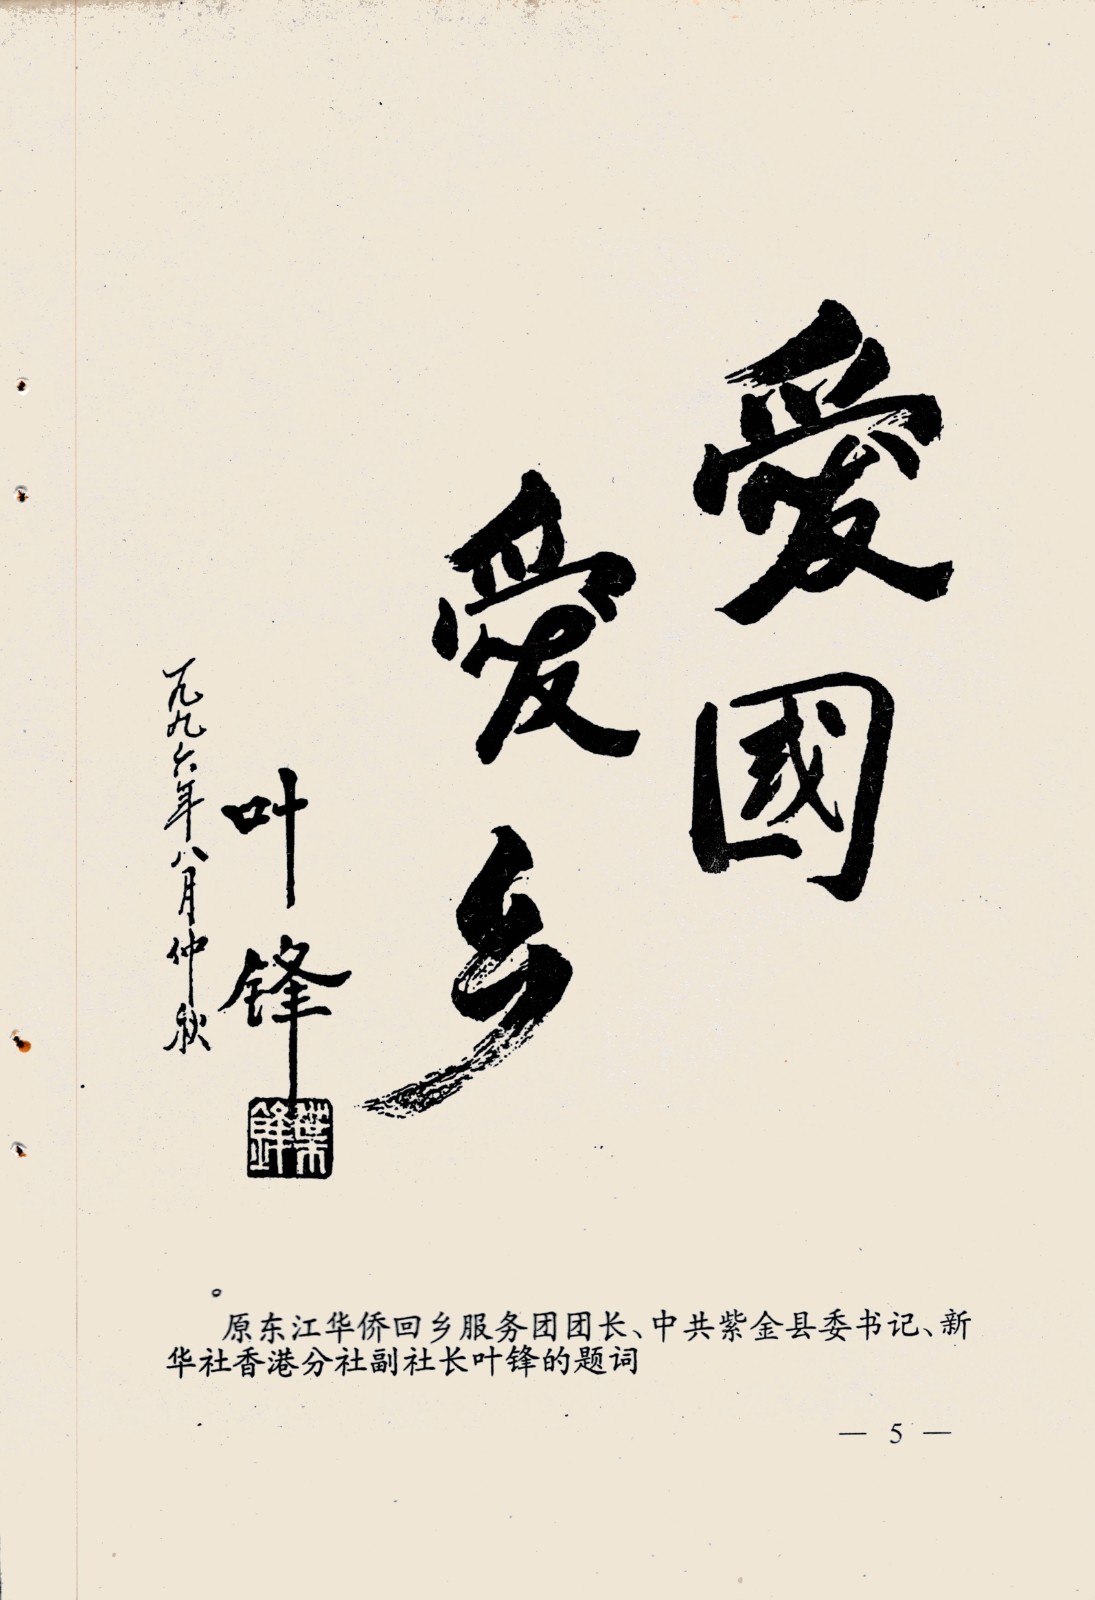 愛國
愛乡
叶锋
一九九六年八月仲秋
葉鋒
原东江华侨回乡服务团团长、中共紫金县委书记、新
华社香港分社副社长叶锋的题词
— 5 —